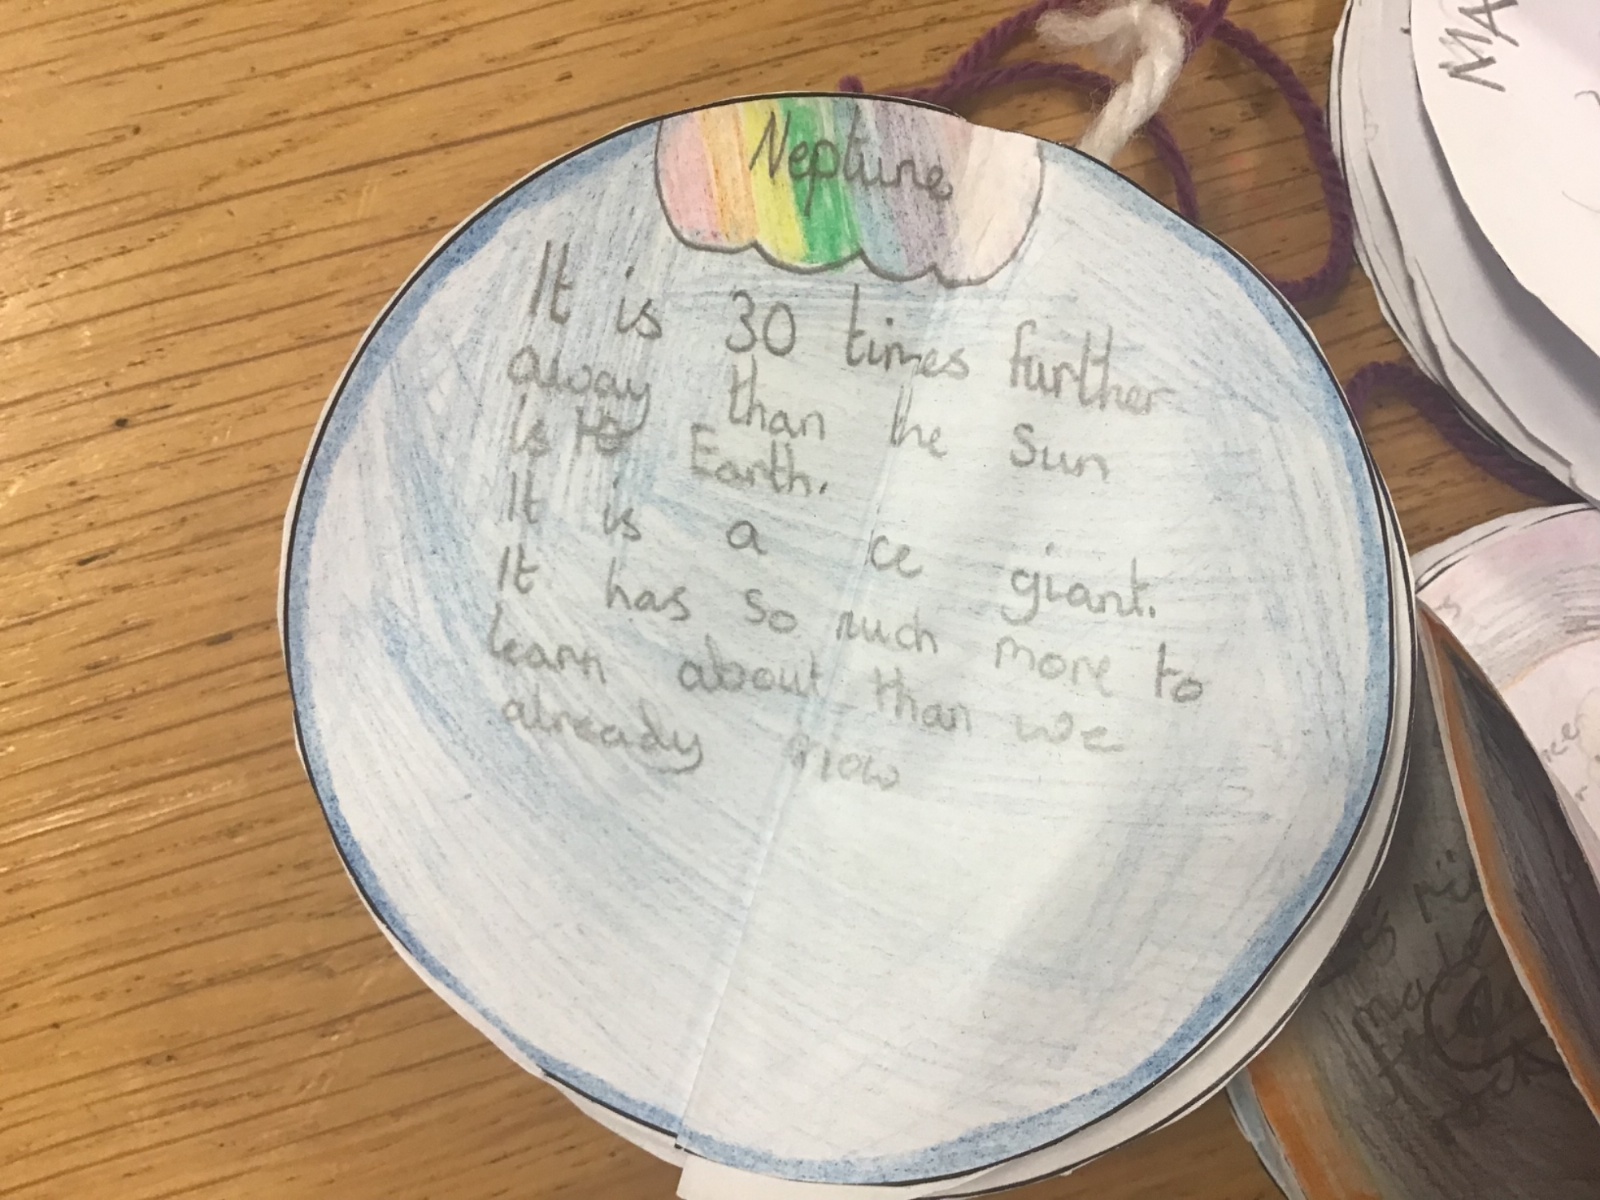 Neptune
It is 30 times further
away than the Sun
is to Earth.
It is a ice giant.
It has so much more to
learn about than we
already now
MA
made